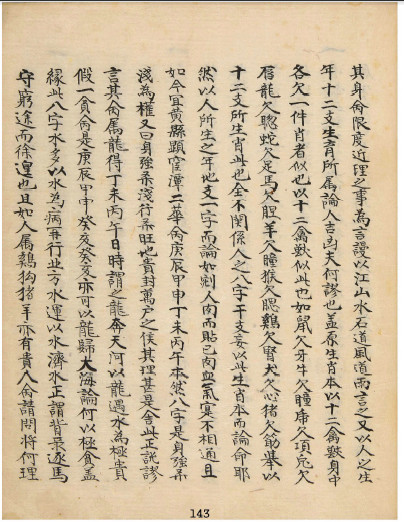 其身命限度近理之事為言謾以江山水石道風道而言之又以人之生
年十二支生肖所属論人吉凶夫何謬也盖原生肖本以十二禽獸身中
各欠一件肖者似也以十二禽獸似此也如鼠欠牙牛欠瞳虎欠項兎欠
唇龍欠聦蛇欠足馬欠胆羊欠瞳猴欠腮鷄欠腎犬欠心猪欠筋舉以
十二支所生肖此也全不關係人之八字干支妄以此生肖本而論命耶
然以人所生之年地支一字而論如割人肉而貼己肉血氣寔不相通且
如今宜黄縣頭窑潭二華命庚辰甲申丁未丙午本然八字是身強柔
淺為權又曰身強柔淺行柔旺地貴封萬户之侯其理甚是人舍此正訛謬
言其命属龍得丁未丙午日時謂之龍奔天河以龍遇水為極貴
假一貪命是庚辰甲申癸亥癸亥亦可以龍歸大海論何以極貪盖
緣此八字水多以水為病再行北方水運以水濟水正謂背景逐馬
守窮途而徐遑也且如人属鷄狗猪羊亦有貴人命請問將何理
143